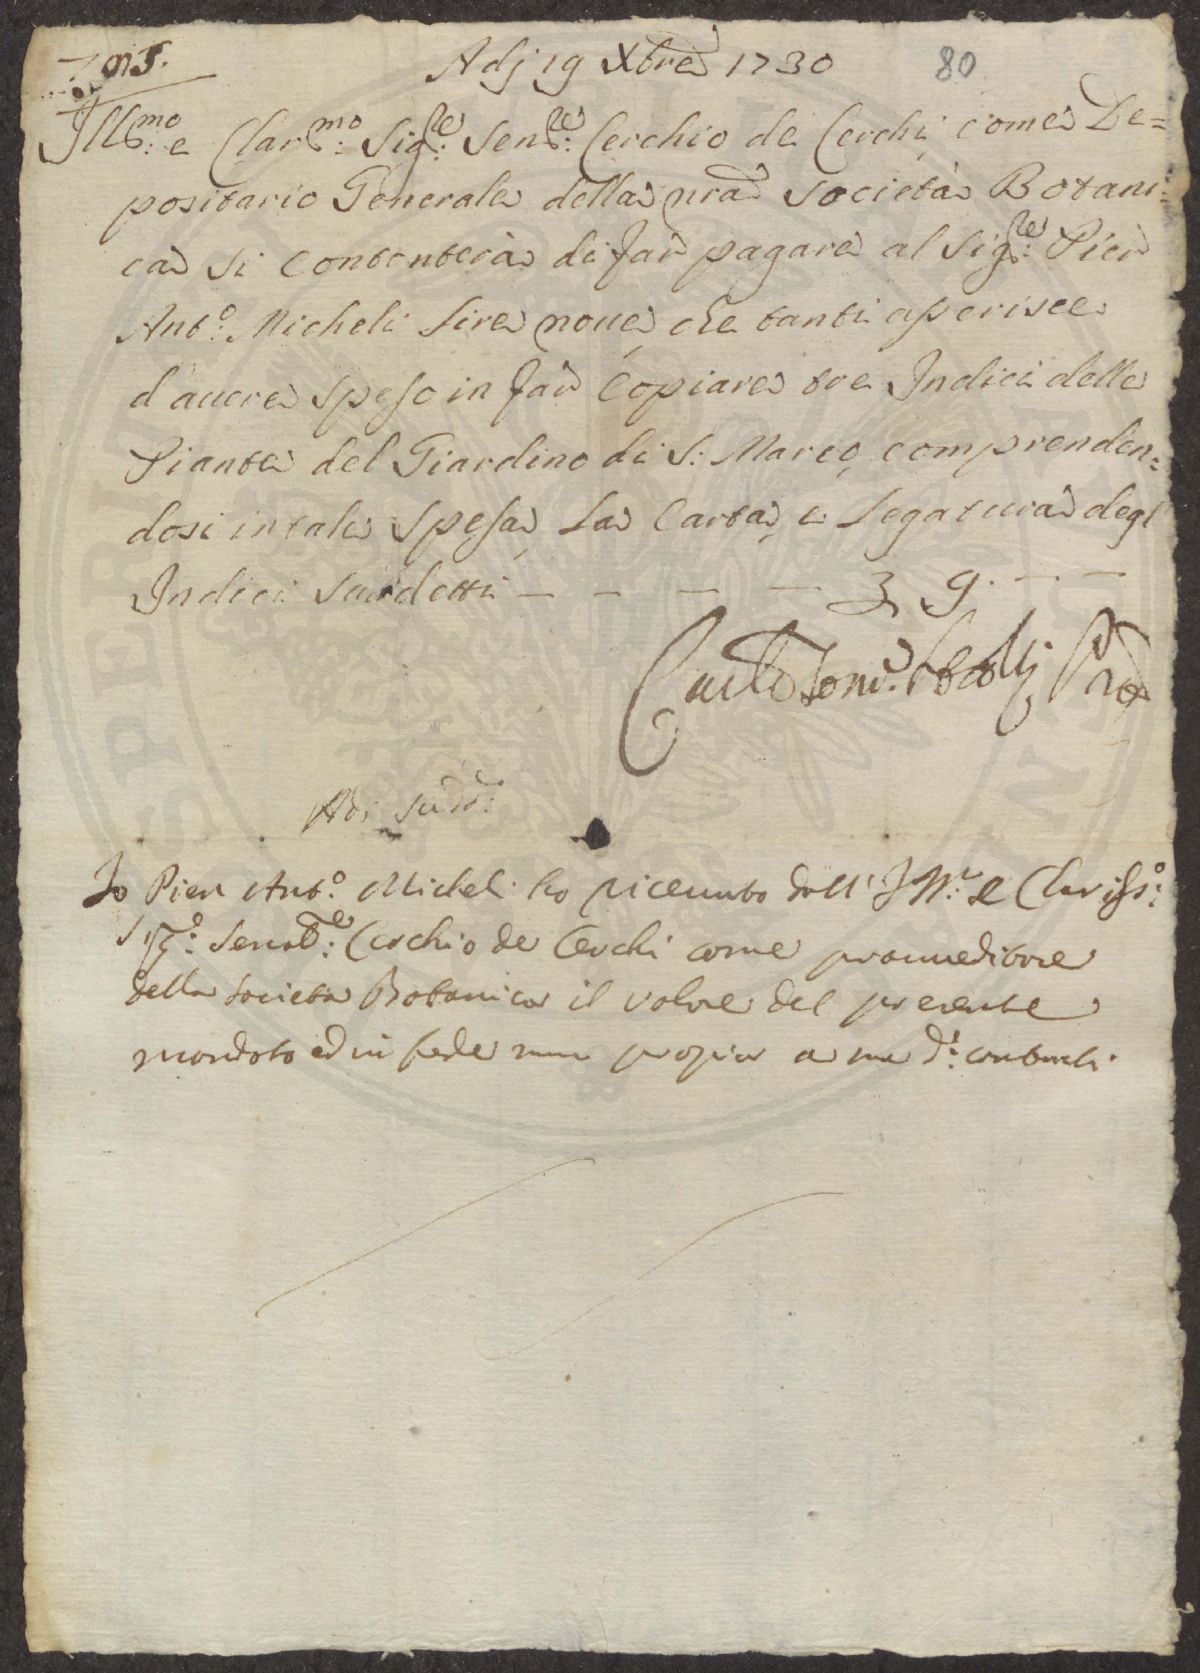 Adj 19 Xbre 1730 80
Ill.mo e Clar.mo Sig.re Sen.re Cerchio de Cerchi come De=
positario Generale della nra Società Botani=
ca si contenterà di far pagare al Sig.re Pier
Ant.o Micheli lire noue, che tanti asperisce
d'auere speso in far Copiare tre Indici delle
Piante del Giardino di S: Marco, comprenden=
dosi in tale spesa, la Carta, e Legatura degl'
Indici sudetti — — — — 9. — —
Adi sud.o:
Io Pier Ant.o Micheli ho riceuuto dall' Ill.mo e Clariss.o:
Sig.re: Senat.re: Cerchio de Cerchi come proueditore
della Società Botanica il valore del presente
mandato ed in fede mano propria a me d.o: contanti.